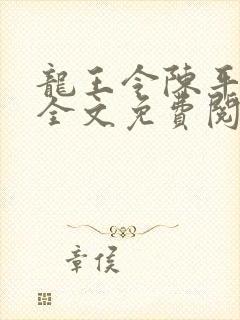 龍王令陳平
全文免費閱
章侯